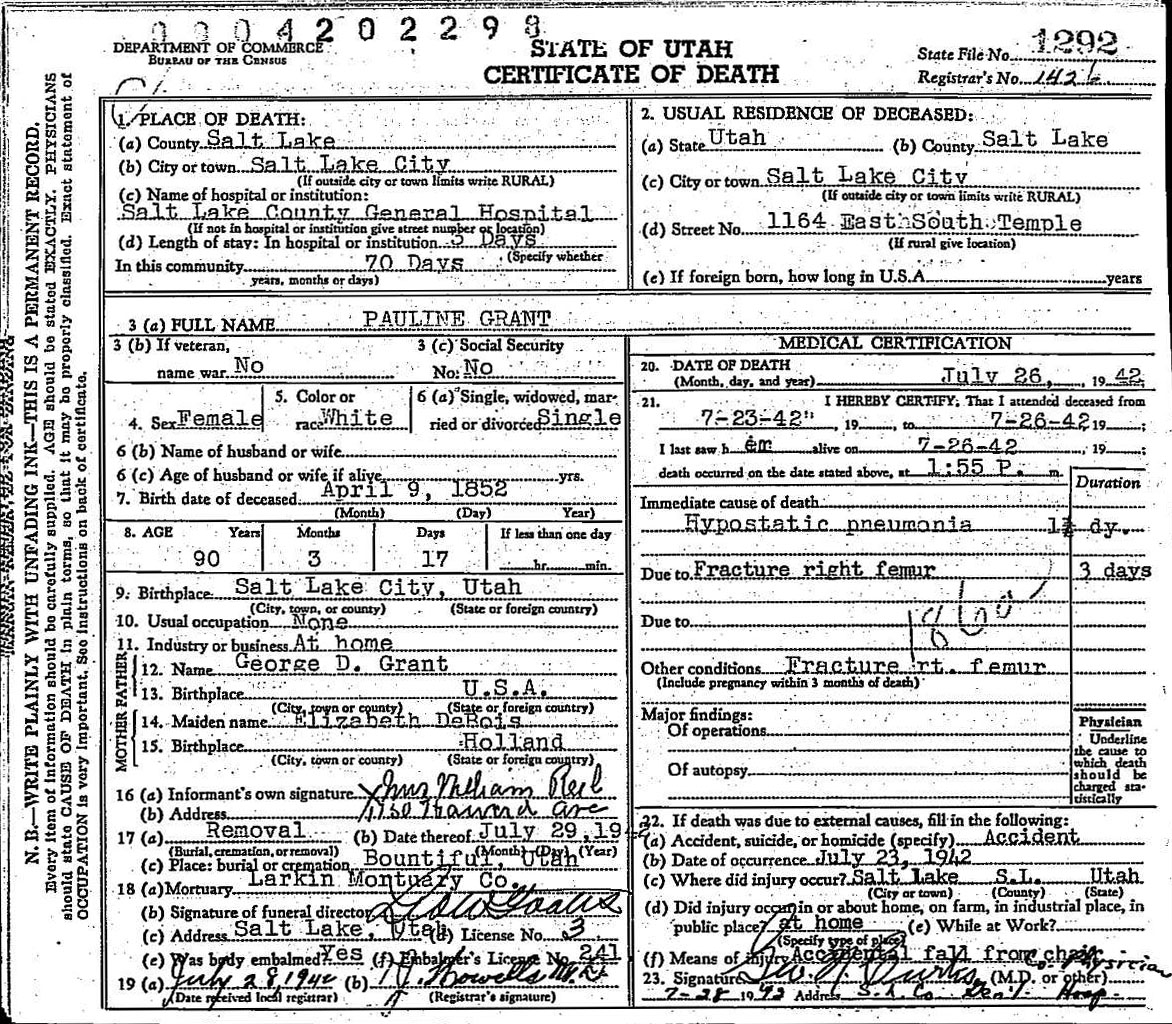 0004202298
DEPARTMENT OF COMMERCE
BUREAU OF THE CENSUS
STATE OF UTAH
CERTIFICATE OF DEATH
State File No. 1292
Registrar's No. 1426
N. B.—WRITE PLAINLY WITH UNFADING INK—THIS IS A PERMANENT RECORD.
Every item of information should be carefully supplied. AGE should be stated EXACTLY. PHYSICIANS
should state CAUSE OF DEATH in plain terms, so that it may be properly classified. Exact statement of
OCCUPATION is very important. See instructions on back of certificate.
1. PLACE OF DEATH:
(a) County Salt Lake
(b) City or town Salt Lake City
(If outside city or town limits write RURAL)
(c) Name of hospital or institution:
Salt Lake County General Hospital
(If not in hospital or institution give street number or location)
(d) Length of stay: In hospital or institution 3 Days
(Specify whether
In this community 70 Days
years, months or days)
2. USUAL RESIDENCE OF DECEASED:
(a) State Utah (b) County Salt Lake
(c) City or town Salt Lake City
(If outside city or town limits write RURAL)
(d) Street No. 1164 East South Temple
(If rural give location)
(e) If foreign born, how long in U.S.A. years
3 (a) FULL NAME PAULINE GRANT
3 (b) If veteran, 3 (c) Social Security
name war No No. No
4. Sex Female 5. Color or race White 6 (a) Single, widowed, married or divorced Single
6 (b) Name of husband or wife
6 (c) Age of husband or wife if alive yrs.
7. Birth date of deceased April 9, 1852
(Month) (Day) Year)
8. AGE Years Months Days If less than one day
90 3 17 hr. min.
9. Birthplace Salt Lake City, Utah
(City, town, or county) (State or foreign country)
10. Usual occupation None
11. Industry or business At home
FATHER
12. Name George D. Grant
13. Birthplace U.S.A.
(City, town or county) (State or foreign country)
MOTHER
14. Maiden name Elizabeth DeBois
15. Birthplace Holland
(City, town or county) (State or foreign country)
16 (a) Informant's own signature Mrs William
(b) Address Ave
17 (a) Removal (b) Date thereof July 29, 1942
(Burial, cremation, or removal) (Month) (Day) (Year)
(c) Place: burial or cremation Bountiful, Utah
18 (a) Mortuary Larkin Montuary Co.
(b) Signature of funeral director
(c) Address Salt Lake, Utah (d) License No. 3
(e) Was body embalmed? Yes (f) Embalmer's License No. 241
19 (a) July 28, 1942 (b)
(Date received local registrar) (Registrar's signature)
MEDICAL CERTIFICATION
20. DATE OF DEATH
(Month, day, and year) July 26, 1942
21. I HEREBY CERTIFY, That I attended deceased from
7-23-42, 19 , to 7-26-42 19 ;
I last saw h em alive on 7-26-42, 19 ;
death occurred on the date stated above, at 1:55 P. m.
Duration
Immediate cause of death
Hypostatic pneumonia 1½ dy.
Due to Fracture right femur 3 days
Due to
Other conditions Fracture rt. femur
(Include pregnancy within 3 months of death)
Major findings:
Of operations
Of autopsy
Physician
Underline
the cause to
which death
should be
charged sta-
tistically
22. If death was due to external causes, fill in the following:
(a) Accident, suicide, or homicide (specify) Accident
(b) Date of occurrence July 23, 1942
(c) Where did injury occur? Salt Lake S.L. Utah
(City or town) (County) (State)
(d) Did injury occur in or about home, on farm, in industrial place, in
public place? at home (e) While at Work?
(Specify type of place)
(f) Means of injury Accidental fall from chair
23. Signature Co. Physician (M.D. or other)
7-28 1942 Address S. L. Co. Gen'l Hosp.